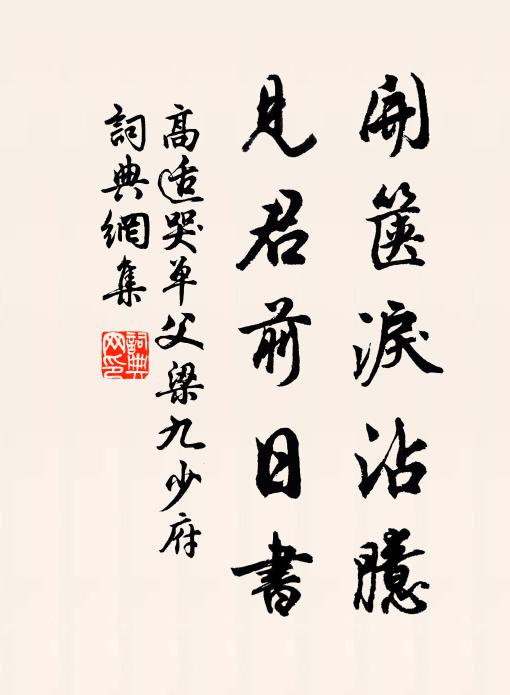 開篋淚沾臆
見君前日書
高适哭单父梁九少府
詞典網集
詞典網印